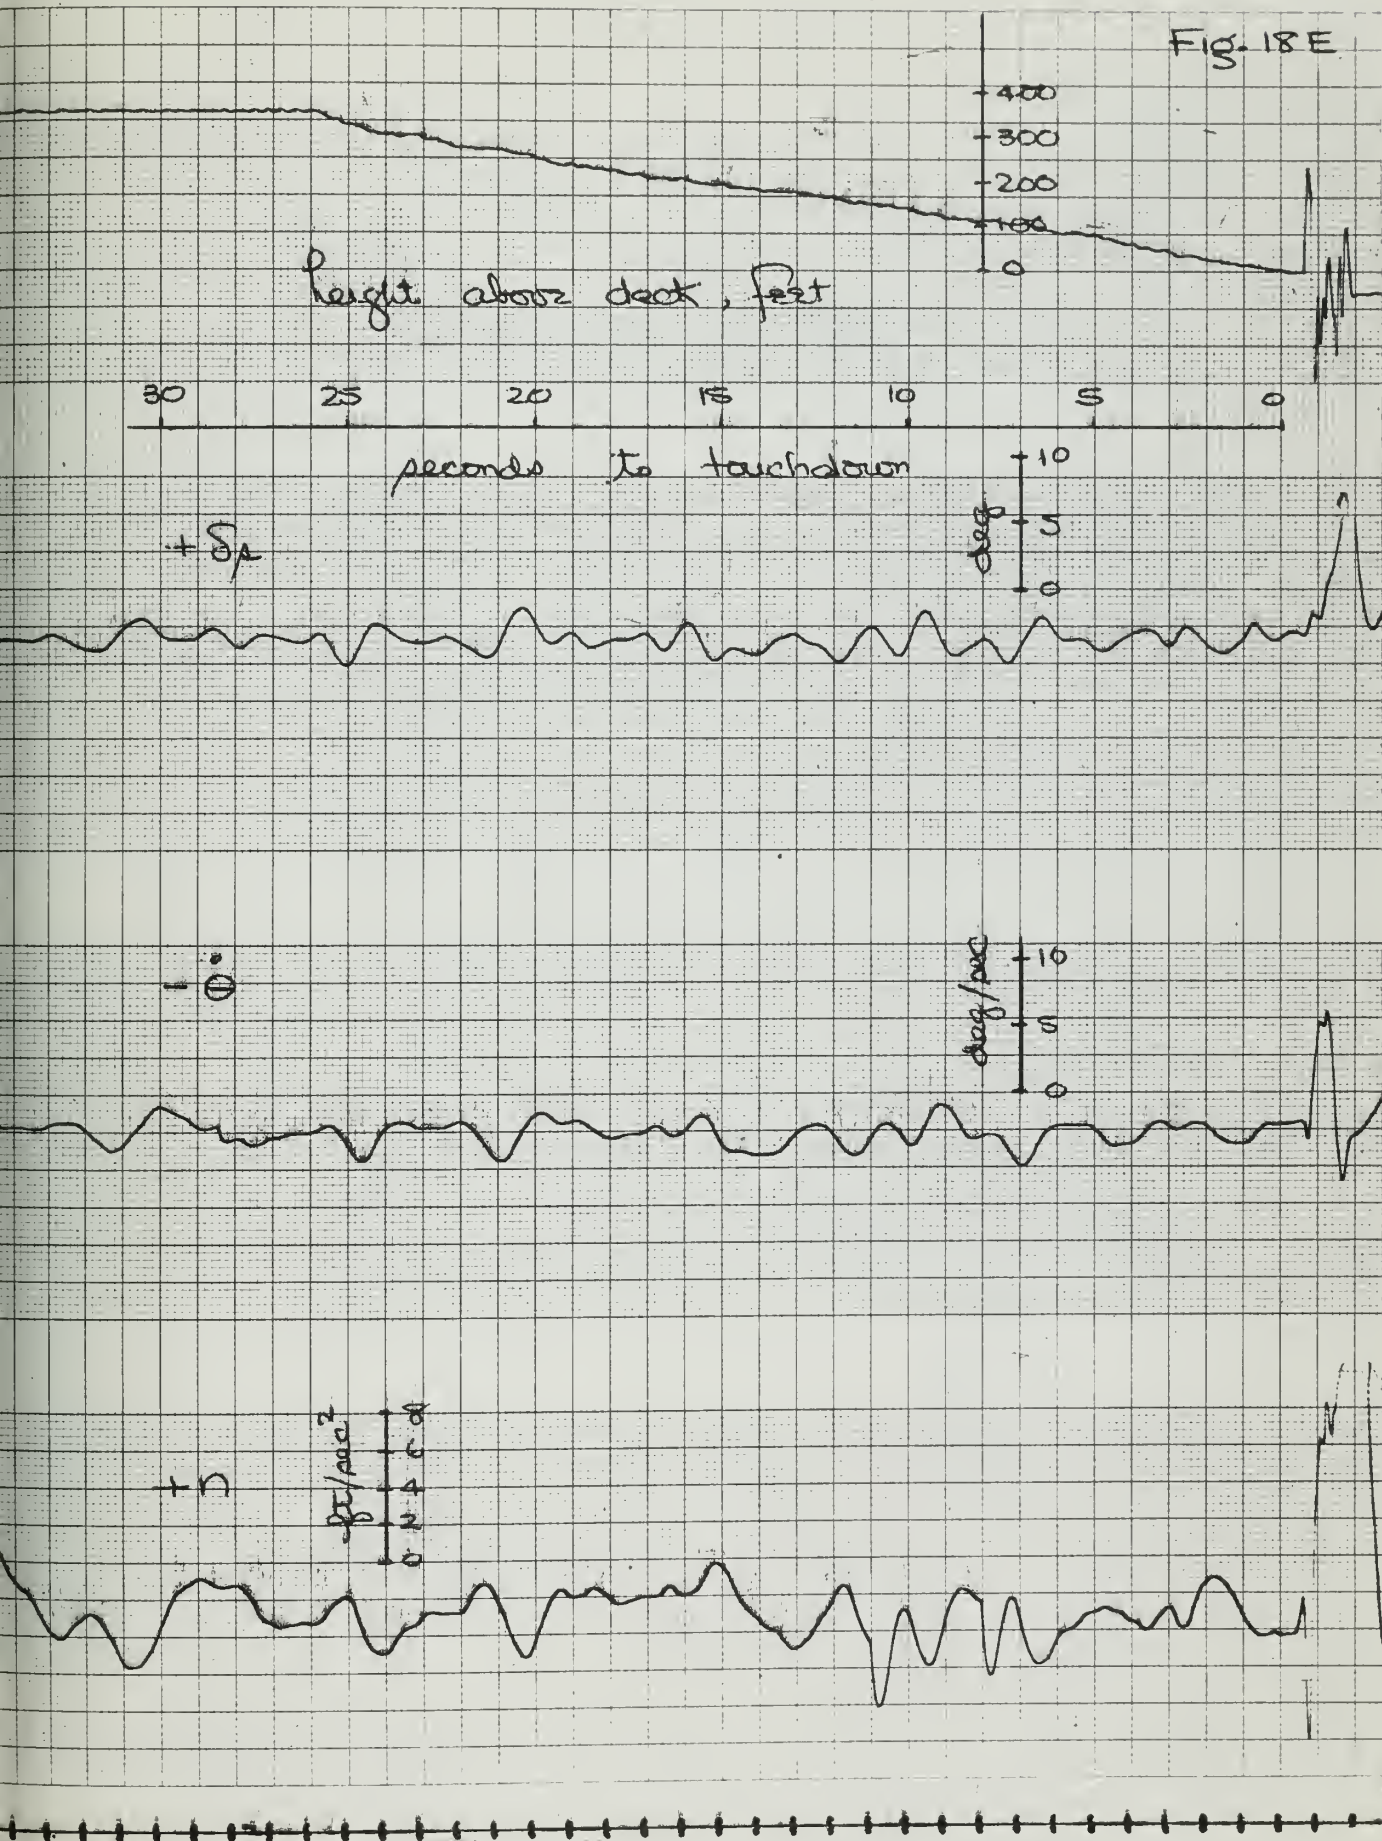 Fig. 18 E
400
300
200
100
0
height above deck, feet
30 25 20 15 10 5 0
seconds to touchdown
+ δs
deg
10
5
0
- θ̇
deg/sec
10
5
0
+ n
ft/sec²
8
6
4
2
0